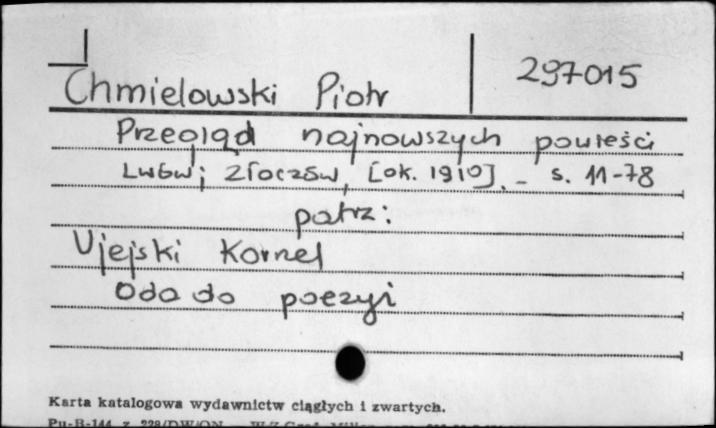 Chmielowski Piotr 297015
Przegląd najnowszych powieści
Lwów; Złoczów, [ok. 1910]. - s. 11-78
patrz:
Ujejski Kornel
Oda do poezyi
Karta katalogowa wydawnictw ciągłych i zwartych.
Pu-B-144 z. 229/DW/ON